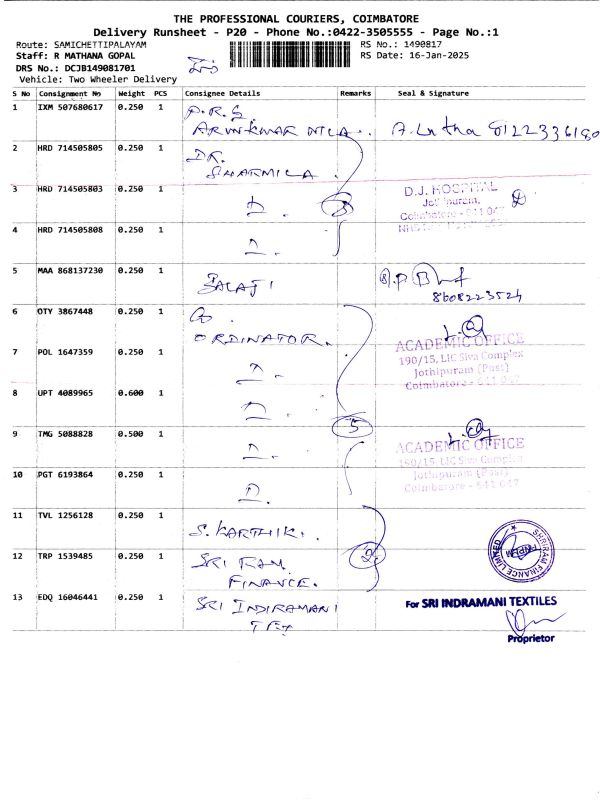 THE PROFESSIONAL COURIERS, COIMBATORE
Delivery Runsheet - P20 - Phone No.:0422-3505555 - Page No.:1
Route: SAMICHETTIPALAYAM
RS No.: 1490817
Staff: R MATHANA GOPAL
RS Date: 16-Jan-2025
DRS No.: DCJB149081701
Vehicle: Two Wheeler Delivery
S No Consignment No Weight PCS Consignee Details Remarks Seal & Signature
1 IXM 507680617 0.250 1 P.R.S.
ARUNKUMAR A.Latha 8122336180
2 HRD 714505805 0.250 1 DR.
SHARMILA.
3 HRD 714505803 0.250 1 3 D.J. HOSPITAL
Jothipuram,
Coimbatore - 641 047
4 HRD 714505808 0.250 1
5 MAA 868137230 0.250 1 BALAJI
8608223524
6 OTY 3867448 0.250 1 CO
ORDINATOR.
ACADEMIC OFFICE
190/15, LIC Siva Complex
7 POL 1647359 0.250 1
Jothipuram (Post)
Coimbatore - 641 047
8 UPT 4089965 0.600 1 5
9 TMG 5088828 0.500 1
ACADEMIC OFFICE
190/15, LIC Siva Complex
10 PGT 6193864 0.250 1
Jothipuram (Post)
Coimbatore - 641 047
11 TVL 1256128 0.250 1 S. KARTHIK.
12 TRP 1539485 0.250 1 SRI RAM 2
FINANCE.
SHRIRAM FINANCE LIMITED
13 EDQ 16046441 0.250 1 SRI INDIRAMANI
TEX
For SRI INDRAMANI TEXTILES
Proprietor